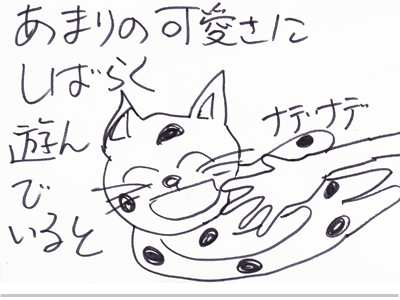 あまりの可愛さに
しばらく
遊ん
で
いると
ナデナデ